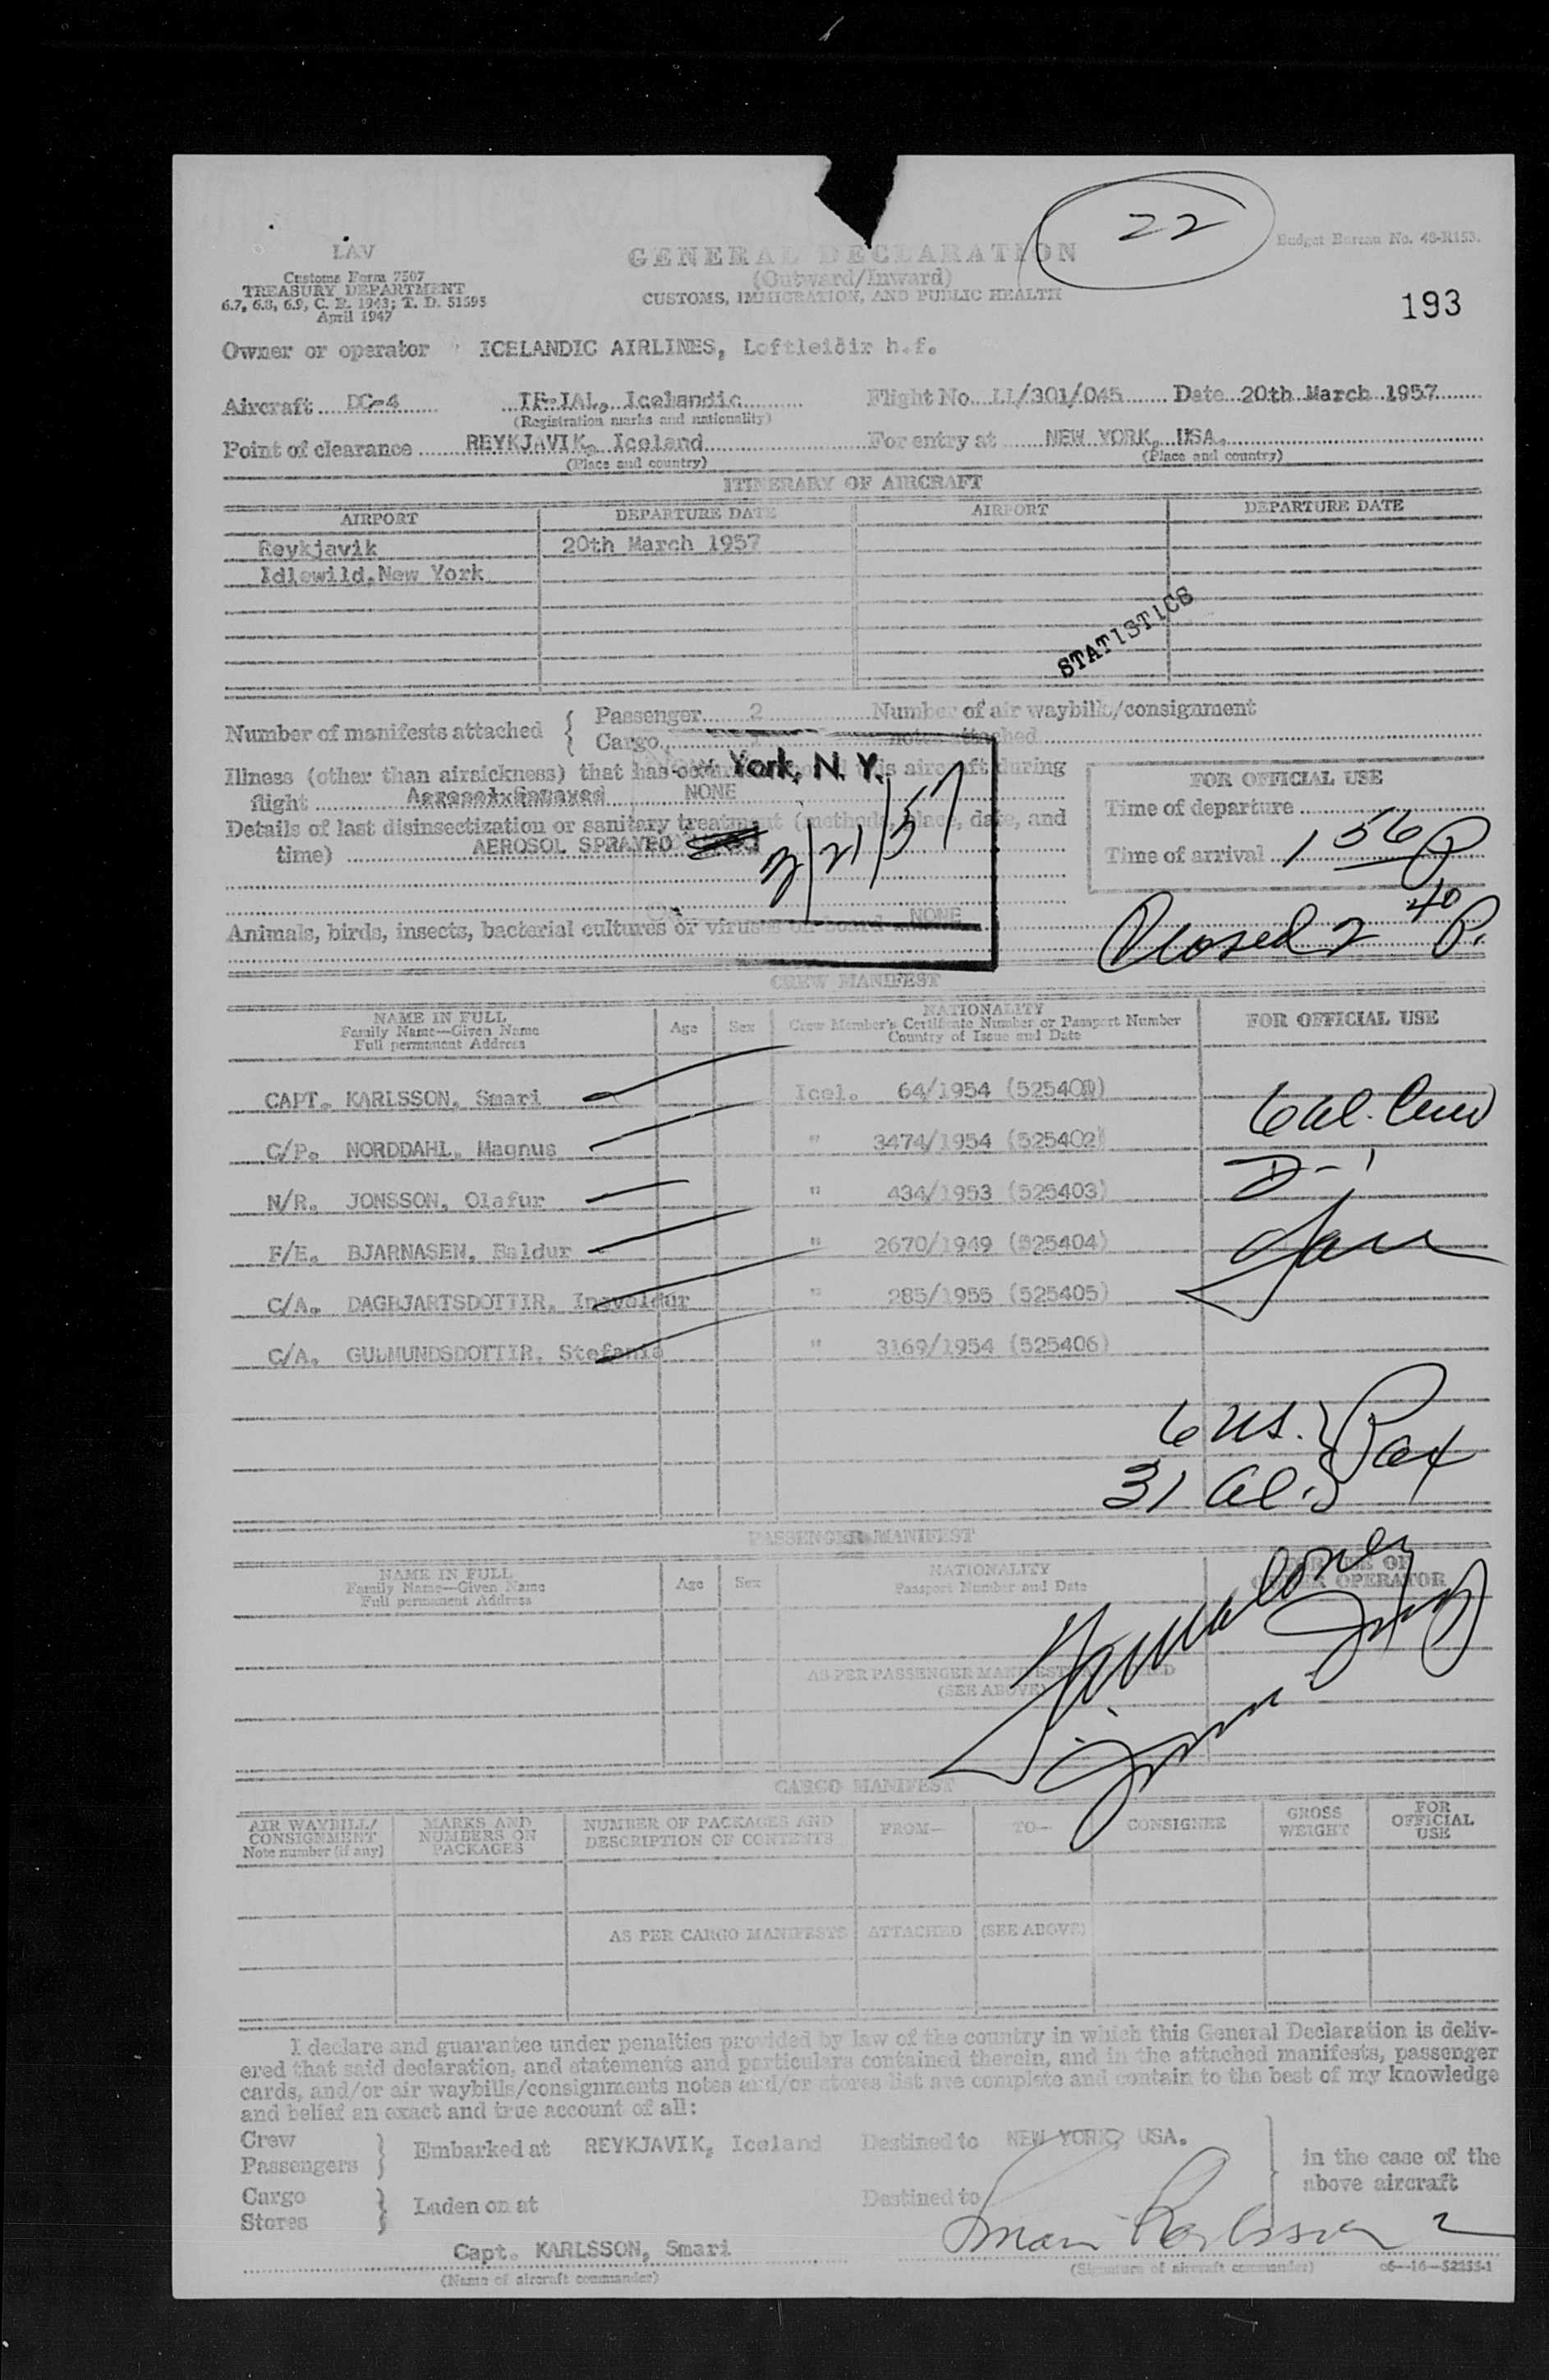 22
Budget Bureau No. 48-R153.
LAV
Customs Form 7507
TREASURY DEPARTMENT
6.7, 6.8, 6.9, C. R. 1943; T. D. 51595
April 1947
GENERAL DECLARATION
(Outward/Inward)
CUSTOMS, IMMIGRATION, AND PUBLIC HEALTH
193
Owner or operator ICELANDIC AIRLINES, Loftleiðir h.f.
Aircraft DC-4 Icelandic Flight No. LL/301/045 Date 20th March 1957
(Registration marks and nationality)
Point of clearance REYKJAVIK, Iceland For entry at NEW YORK, USA.
(Place and country) (Place and country)
ITINERARY OF AIRCRAFT
AIRPORT DEPARTURE DATE AIRPORT DEPARTURE DATE
Reykjavik 20th March 1957
Idlewild, New York
STATISTICS
Number of manifests attached { Passenger 2 Number of air waybills/consignment
Cargo notes attached
York, N. Y.
Illness (other than airsickness) that has aircraft during
flight Aerosol Sprayed NONE
FOR OFFICIAL USE
Time of departure
Details of last disinsectization or sanitary treatment (method, place, date, and
time) AEROSOL SPRAYED
3/21/57
Time of arrival 1 56 P
Closed 2 40 P.
Animals, birds, insects, bacterial cultures or viruses on board NONE
CREW MANIFEST
NAME IN FULL
Family Name—Given Name
Full permanent Address
Age Sex
NATIONALITY
Crew Member's Certificate Number or Passport Number
Country of Issue and Date
FOR OFFICIAL USE
CAPT. KARLSSON, Smari Icel. 64/1954
C/P. NORDDAHL, Magnus " 3474/1954 (525402)
N/R. JONSSON, Olafur " 434/1953 (525403)
F/E. BJARNASEN, Baldur " 2670/1949 (525404)
C/A. DAGBJARTSDOTTIR, Ingveldur " 285/1955 (525405)
C/A. GUDMUNDSDOTTIR, Stefania " 3169/1954 (525406)
6 al. Crew
D-1
6 US. } Pax
31 al. }
PASSENGER MANIFEST
NAME IN FULL
Family Name—Given Name
Full permanent Address
Age Sex
NATIONALITY
Passport Number and Date
FOR USE OF
OWNER OPERATOR
AS PER PASSENGER MANIFEST ATTACHED
(SEE ABOVE)
CARGO MANIFEST
AIR WAYBILL/
CONSIGNMENT
Note number (if any)
MARKS AND
NUMBERS ON
PACKAGES
NUMBER OF PACKAGES AND
DESCRIPTION OF CONTENTS
FROM— TO— CONSIGNEE
GROSS
WEIGHT
FOR
OFFICIAL
USE
AS PER CARGO MANIFESTS ATTACHED (SEE ABOVE)
I declare and guarantee under penalties provided by law of the country in which this General Declaration is deliv-
ered that said declaration, and statements and particulars contained therein, and in the attached manifests, passenger
cards, and/or air waybills/consignments notes and/or stores list are complete and contain to the best of my knowledge
and belief an exact and true account of all:
Crew
Passengers } Embarked at REYKJAVIK, Iceland Destined to NEW YORK, USA.
in the case of the
above aircraft
Cargo
Stores } Laden on at Destined to
Smari Karlsson
Capt. KARLSSON, Smari
(Name of aircraft commander) (Signature of aircraft commander)